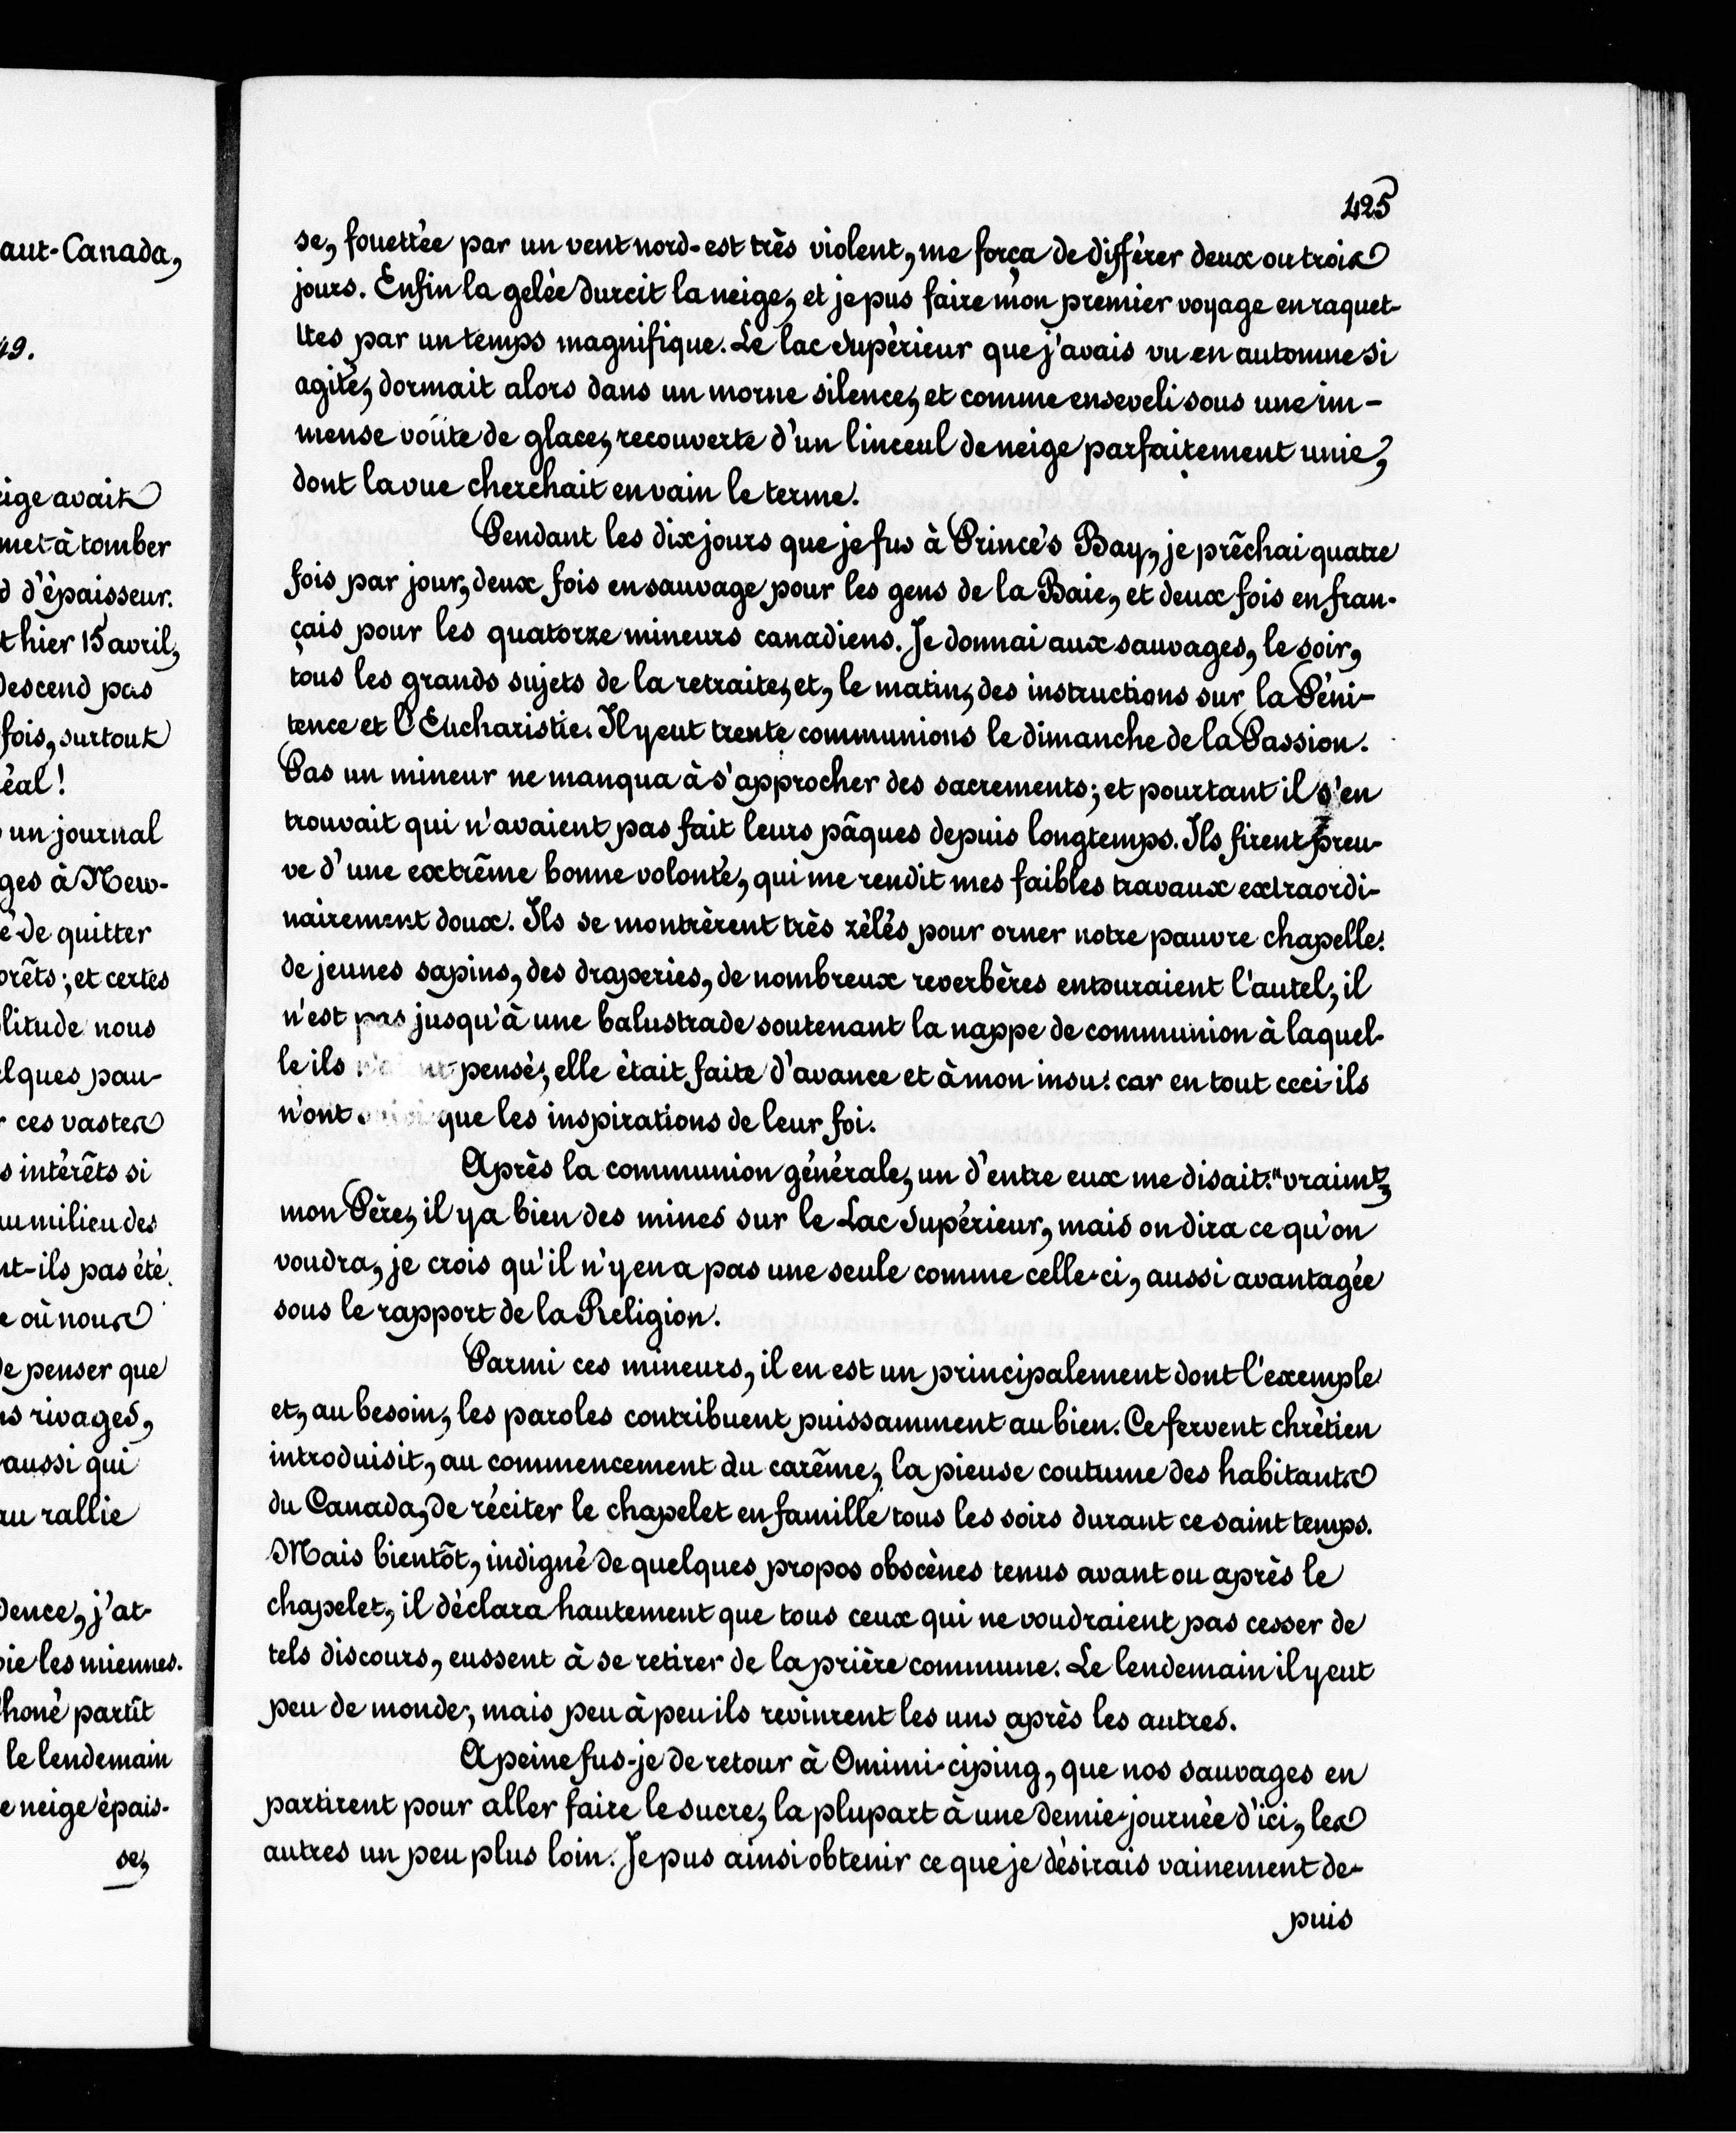 aut-Canada,
49.
eige avait
met à tomber
d d'épaisseur.
t hier 15 avril,
descend pas
fois, surtout
éal!
un journal
ges à New-
é de quitter
orêts; et certes
litude nous
elques pau-
r ces vastes
s intérêts si
au milieu des
nt-ils pas été
e où nous
de penser que
ns rivages,
aussi qui
au rallie
dence, j'at-
oie les miennes.
honé partît
le lendemain
e neige épais-
se,
425
se, fouettée par un vent nord-est très violent, me força de différer deux ou trois
jours. Enfin la gelée durcit la neige, et je pus faire mon premier voyage en raquet-
ttes par un temps magnifique. Le lac Supérieur que j'avais vu en automne si
agité, dormait alors dans un morne silence, et comme enseveli sous une im-
mense voûte de glace, recouverte d'un linceul de neige parfaitement unie,
dont la vue cherchait en vain le terme.
Pendant les dix jours que je fus à Prince's Bay, je prêchai quatre
fois par jour, deux fois en sauvage pour les gens de la Baie, et deux fois en fran-
çais pour les quatorze mineurs canadiens. Je donnai aux sauvages, le soir,
tous les grands sujets de la retraite, et, le matin, des instructions sur la Péni-
tence et l'Eucharistie. Il y eut trente communions le dimanche de la Passion.
Pas un mineur ne manqua à s'approcher des sacrements; et pourtant il s'en
trouvait qui n'avaient pas fait leurs pâques depuis longtemps. Ils firent preu-
ve d'une extrême bonne volonté, qui me rendit mes faibles travaux extraordi-
nairement doux. Ils se montrèrent très zélés pour orner notre pauvre chapelle:
de jeunes sapins, des draperies, de nombreux reverbères entouraient l'autel, il
n'est pas jusqu'à une balustrade soutenant la nappe de communion à laquel-
le ils pensé; elle était faite d'avance et à mon insu: car en tout ceci ils
n'ont que les inspirations de leur foi.
Après la communion générale, un d'entre eux me disait: "vraimt,
mon Père, il y a bien des mines sur le Lac Supérieur, mais on dira ce qu'on
voudra, je crois qu'il n'y en a pas une seule comme celle-ci, aussi avantagée
sous le rapport de la Religion.
Parmi ces mineurs, il en est un principalement dont l'exemple
et, au besoin, les paroles contribuent puissamment au bien. Ce fervent chrétien
introduisit, au commencement du carême, la pieuse coutume des habitants
du Canada, de réciter le chapelet en famille tous les soirs durant ce saint temps.
Mais bientôt, indigné de quelques propos obscènes tenus avant ou après le
chapelet, il déclara hautement que tous ceux qui ne voudraient pas cesser de
tels discours, eussent à se retirer de la prière commune. Le lendemain il y eut
peu de monde; mais peu à peu ils revinrent les uns après les autres.
A peine fus-je de retour à Omimi-ciping, que nos sauvages en
partirent pour aller faire le sucre, la plupart à une demie-journée d'ici, les
autres un peu plus loin. Je pus ainsi obtenir ce que je désirais vainement de-
puis